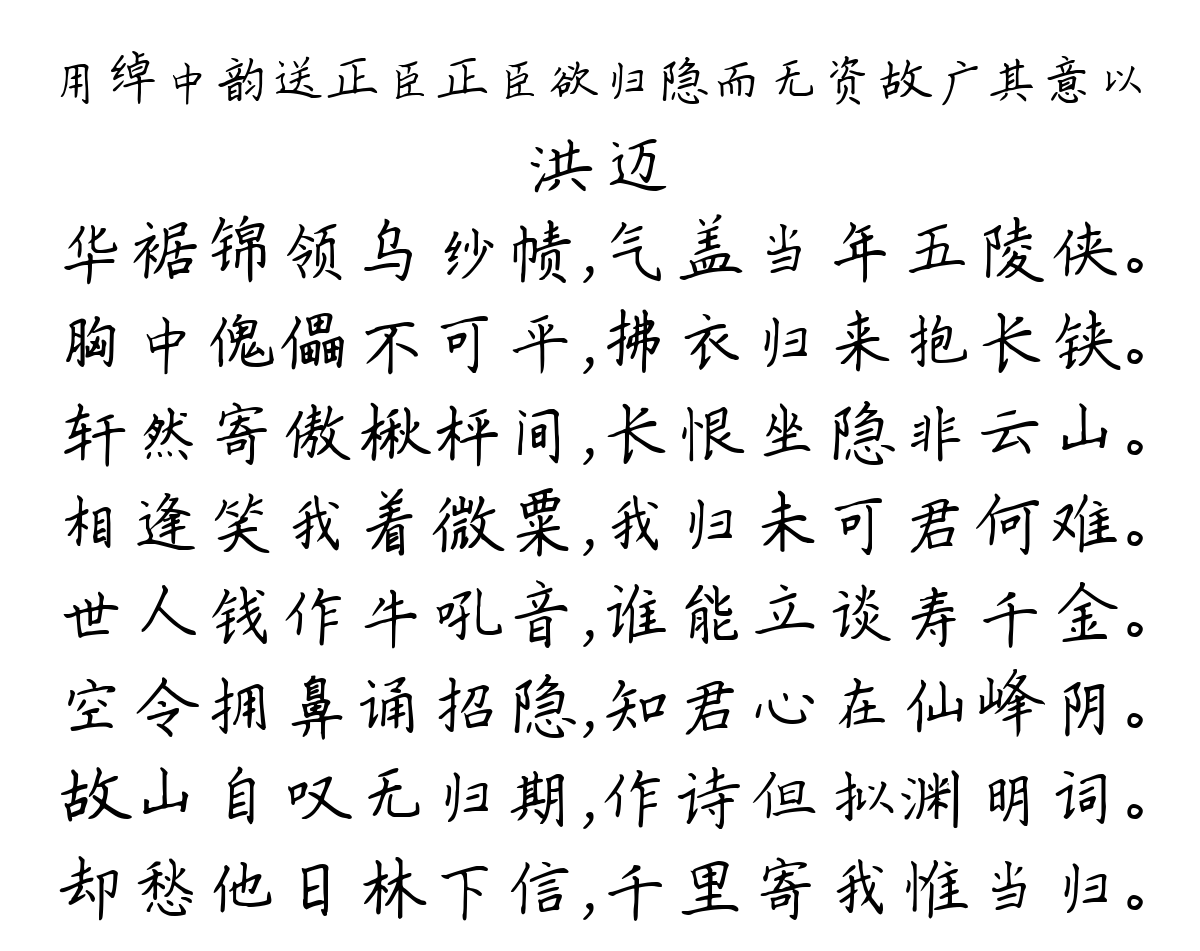 用绰中韵送正臣正臣欲归隐而无资故广其意以
洪迈
华裾锦领乌纱帻,气盖当年五陵侠。
胸中傀儡不可平,拂衣归来抱长铗。
轩然寄傲楸枰间,长恨坐隐非云山。
相逢笑我着微粟,我归未可君何难。
世人钱作牛吼音,谁能立谈寿千金。
空令拥鼻诵招隐,知君心在仙峰阴。
故山自叹无归期,作诗但拟渊明词。
却愁他日林下信,千里寄我惟当归。